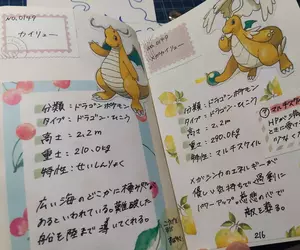 no.0149
カイリュー
分類：ドラゴンポケモン
タイプ：ドラゴン・ひこう
高さ：2.2m
重さ：210.0kg
特性：せいしんりょく
広い海のどこかに棲み家が
あるといわれている。難破した
船を陸まで導いてくれる。
no.0149
メガカイリュー
分類：ドラゴンポケモン
タイプ：ドラゴン・ひこう
高さ：2.2m
重さ：290.0kg
特性：マルチスケイル
メガシンカのエネルギーが
優しい気持ちで過剰に
パワーアップ。慈悲の心で
敵を葬る。
マルチスケ
HPが
少なく
216